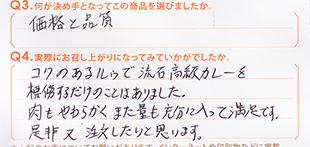 Q3.何が決め手となってこの商品を選びましたか。
価格と品質
Q4.実際にお召し上がりになってみていかがでしたか。
コクのあるルゥで流石高級カレーを
標傍するだけのことはありました。
肉もやわらかくまた量も充分に入って満足です。
是非又注文したいと思います。